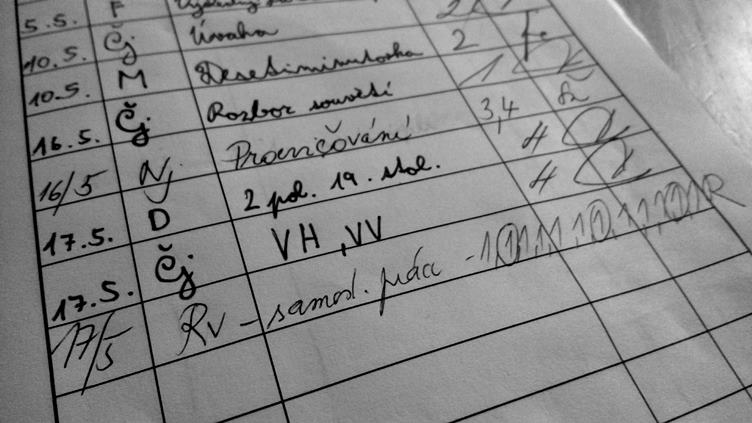 5.5. F
10.5. Čj Úvaha 2
10.5. M Desetiminutovka 1
16.5. Čj Rozbor souvětí 3,4
16/5 Nj Procvičování 4
17.5. D 2 pol. 19. stol. 4
17.5. Čj VH, VV
17/5 Rv - samost. práci -